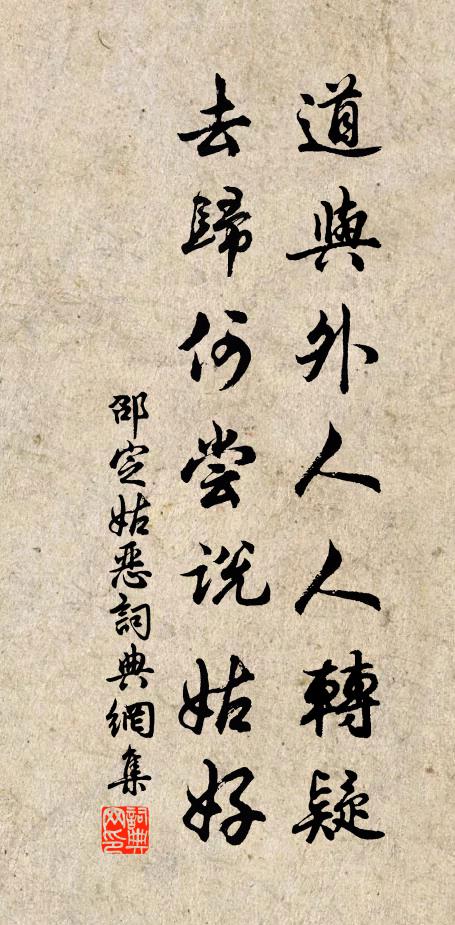 道與外人人轉疑
去歸何嘗說姑好
邵定姑惡詞典網集
詞典網印